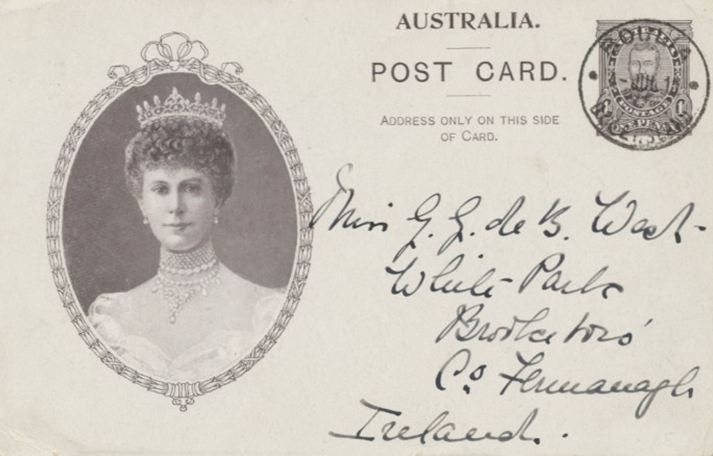 AUSTRALIA.
POST CARD.
ADDRESS ONLY ON THIS SIDE
OF CARD.
POSTAGE
Miss G. G. de B. West
White Park
Brookeboro'
Co Fermanagh
Ireland.